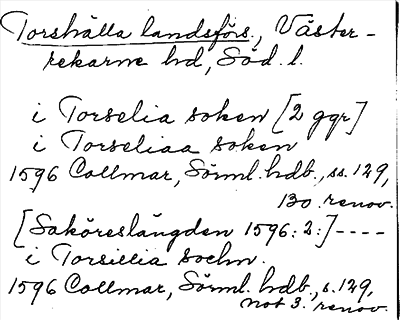 Torshälla landsförs., Väster-
rekarne hd, Söd. l.
i Torselia soken [2 ggr]
i Torseliaa soken
1596 Collmar, Sörml. hdb., ss. 129,
130. renov.
[Saköreslängden 1596: 2:] ----
i Torsillia sochn.
1596 Collmar, Sörml. hdb., s. 129,
not 3. renov.